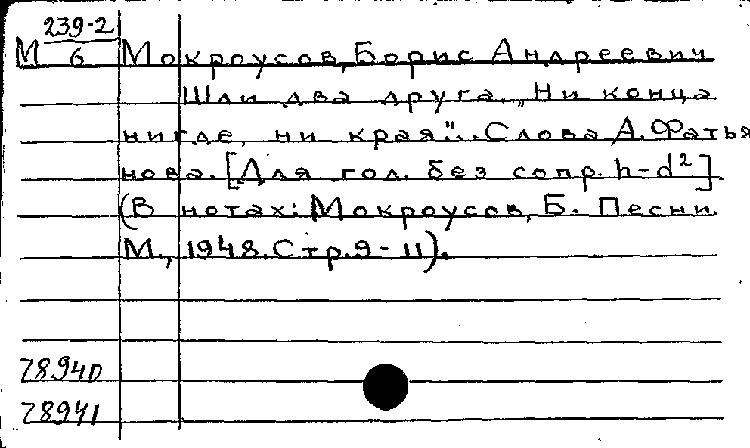 239-2
М 6 Мокроусов, Борис Андреевич
Шли два друга. „Ни конца
нигде, ни края"... Слова А. Фатья
нова. [Для гол. без сопр. h-d²]
(В нотах: Мокроусов, Б. Песни
М., 1948. Стр. 9-11).
78940
78941